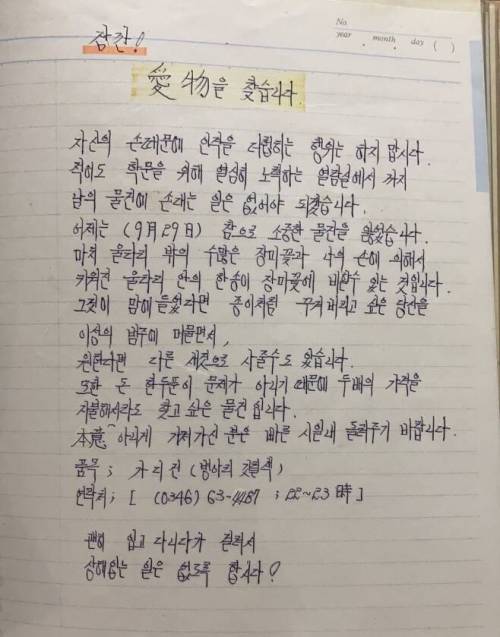 No.
year . month . day ( )
잠깐!
愛物을 찾습니다.
자신의 손때문에 안적을 더럽히는 행위는 하지 맙시다.
적어도 학문을 위해 열심히 노력하는 열람실에서 까지
남의 물건에 손대는 일은 없어야 되겠습니다.
어제는 (9月29日) 참으로 소중한 물건을 잃었습니다.
마치 울타리 밖의 수많은 장미꽃과 나의 손에 의해서
키워진 울타리 안의 한송이 장미꽃에 비할수 있는 것입니다.
그것이 맘에들었다면 종이처럼 구겨버리고 싶은 당신을
이성의 범주에 머물면서,
원한다면 다른 새것으로 사줄수도 있습니다.
또한 돈 한두푼이 문제가 아니기 때문에 두배의 가격을
지불해서라도 찾고 싶은 물건 입니다.
本意 아니게 가져가신 분은 빠른 시일내 돌려주기 바랍니다.
품목 ; 가디건 (병아리 깃털색)
연락처; [ (0346) 63-4487 ; 22~23 時 ]
괜히 입고 다니다가 걸려서
상해입는 일은 없도록 합시다!